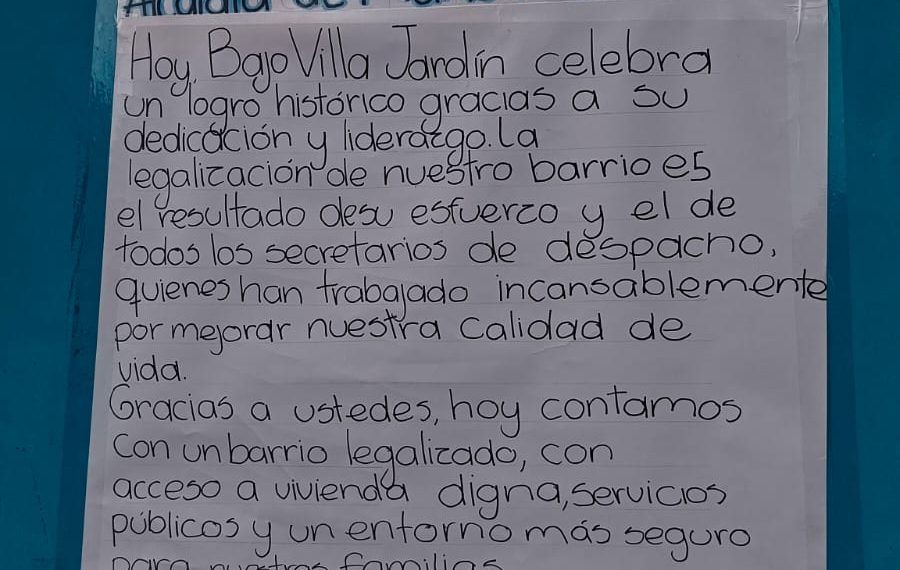 Alcaldía de
Hoy, Bajo Villa Jardín celebra
un logro histórico gracias a su
dedicación y liderazgo. La
legalización de nuestro barrio es
el resultado de su esfuerzo y el de
todos los secretarios de despacho,
quienes han trabajado incansablemente
por mejorar nuestra calidad de
vida.
Gracias a ustedes, hoy contamos
con un barrio legalizado, con
acceso a vivienda digna, servicios
públicos y un entorno más seguro
para nuestras familias